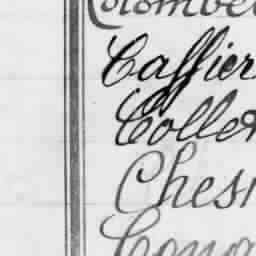 Colombe
Caffier
Colle
Ches
Cono